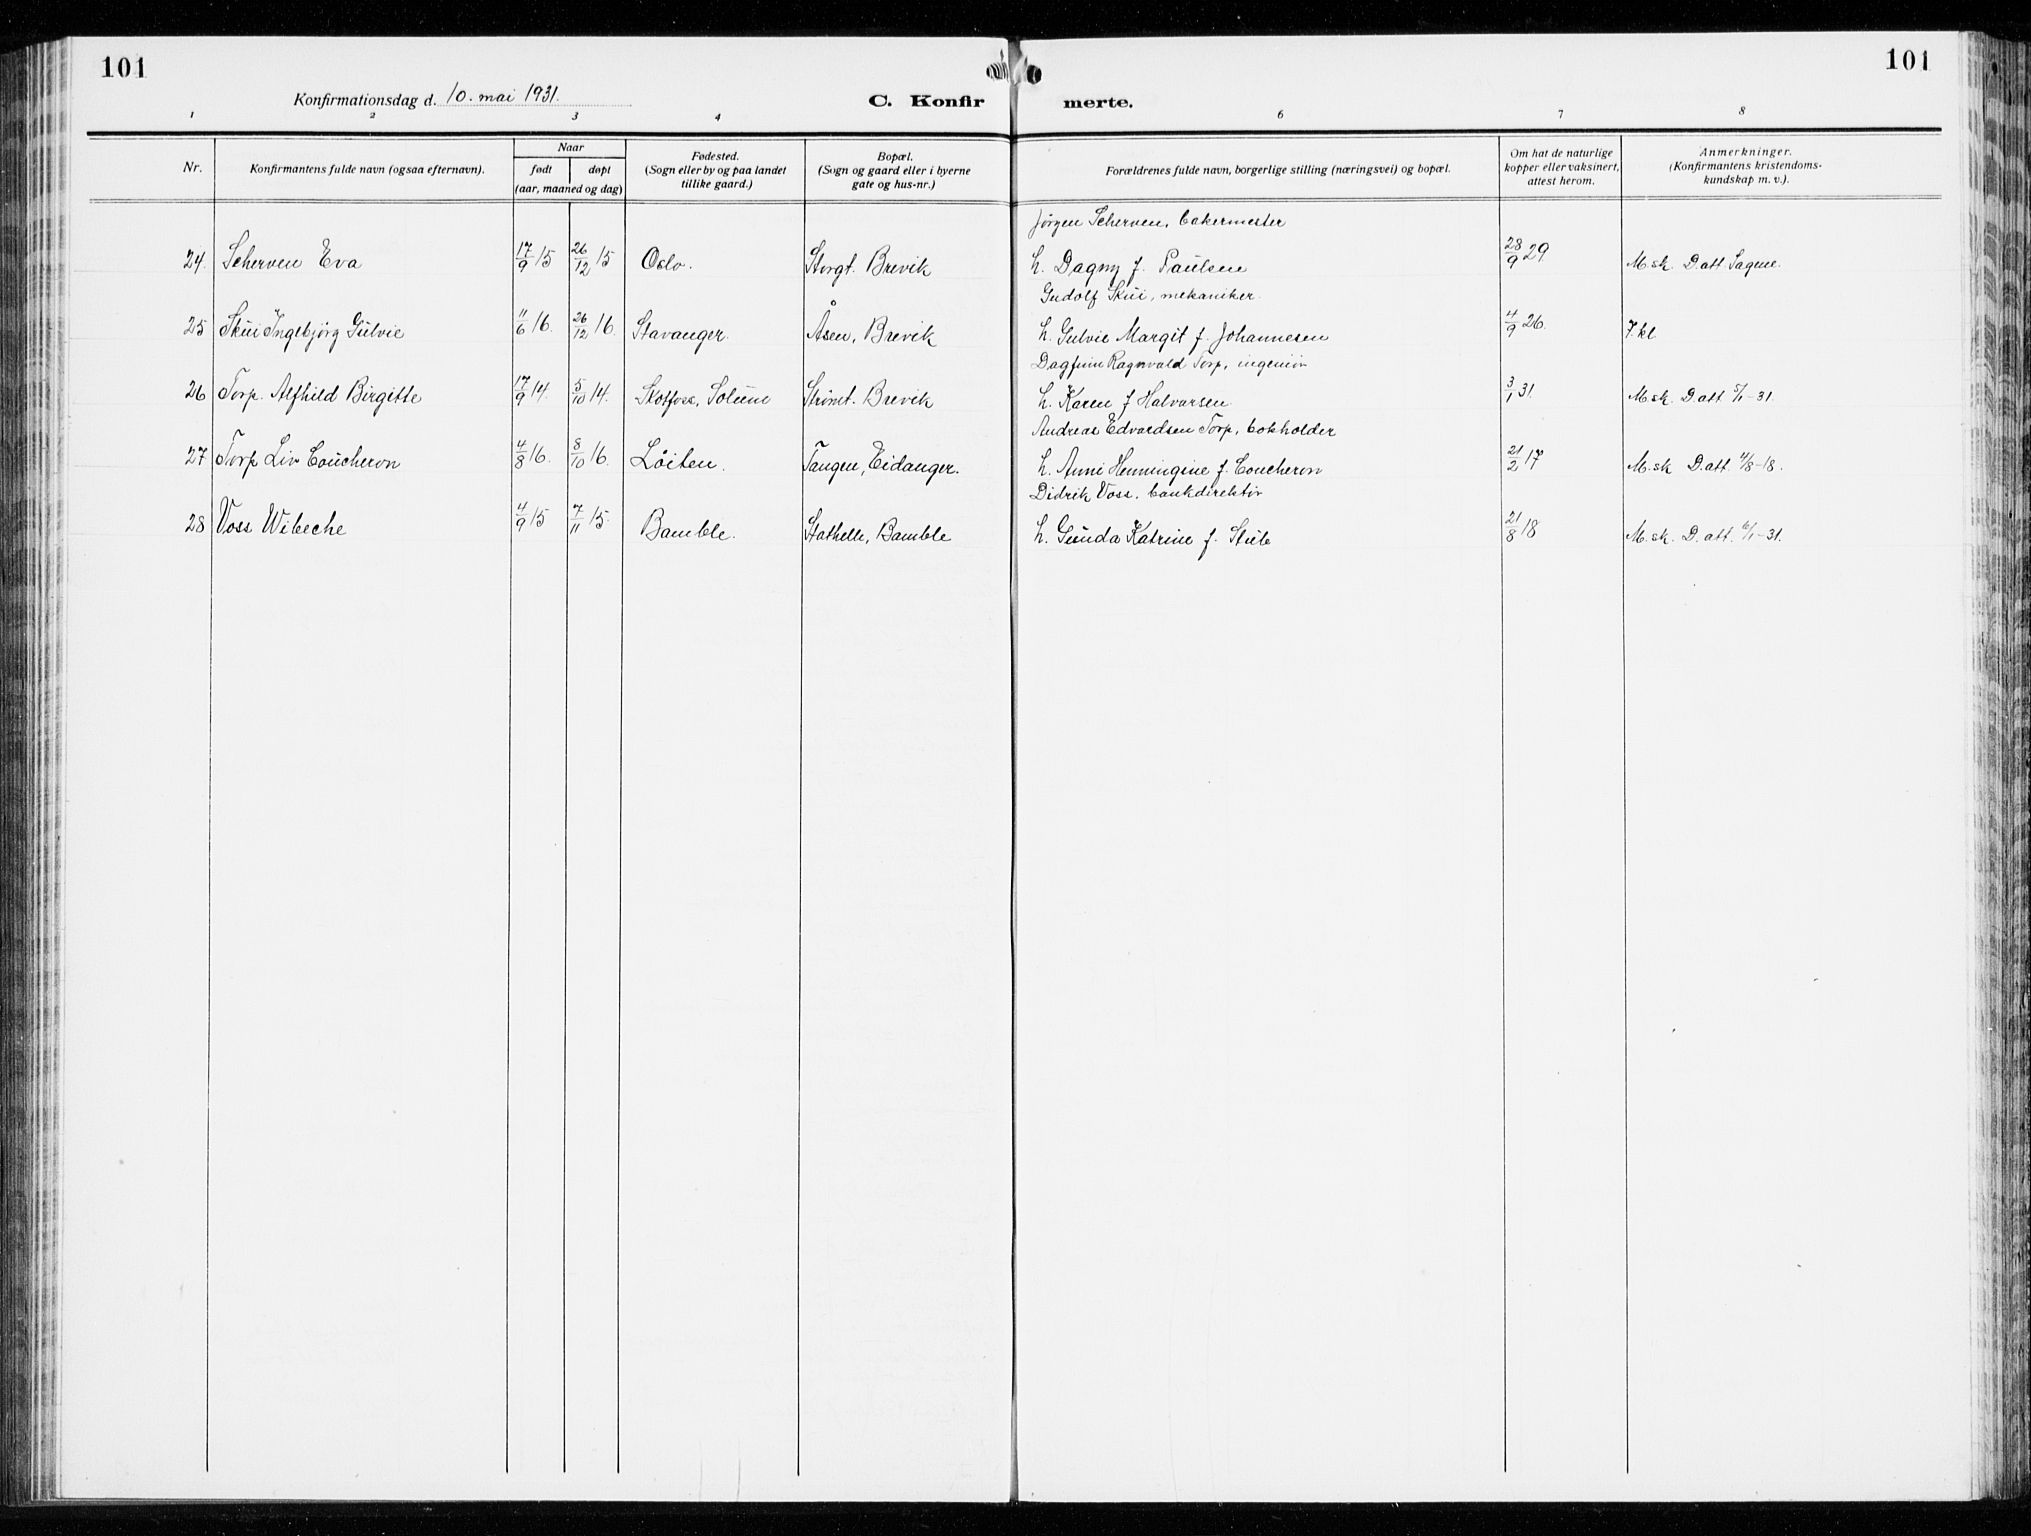 101
101
Konfirmationsdag d. 10. mai 1931.
C. Konfir
merte.
1 2 3 4 6 7 8
Nr.
Konfirmantens fulde navn (ogsaa efternavn).
Naar
født
døpt
(aar, maaned og dag)
Fødested.
(Sogn eller by og paa landet
tillike gaard.)
Bopæl.
(Sogn og gaard eller i byerne
gate og hus-nr.)
Forældrenes fulde navn, borgerlige stilling (næringsvei) og bopæl.
Om hat de naturlige
kopper eller vaksinert,
attest herom.
Anmerkninger.
(Konfirmantens kristendoms-
kundskap m. v.).
Jørgen Scherven, bakermester
24. Scherven Eva 17/9 15 26/12 15 Oslo. Storgt. Brevik h. Dagny f. Paulsen 28/9 29 M.sk. D.att. Sagene.
Gudolf Skui, mekaniker.
25 Skui Ingebjørg Gulvie 11/6 16. 26/12 16. Stavanger. Åsen, Brevik h. Gulvie Margit f. Johannesen 4/9 26. 7. kl
Dagfinn Ragnvald Torp, ingeniør
26 Torp. Alfhild Birgitte 17/9 14. 5/10 14. Skotfoss, Solum Strømt. Brevik h. Karen f Halvarsen 3/1 31. M.sk. D.att 5/1-31.
Andreas Edvardsen Torp, bokholder
27 Torp Liv Coucheron 4/8 16. 8/10 16. Løiten. Tangen, Eidanger. h. Anni Henningine f. Coucheron 21/2 17 M.sk D.att 4/8-18.
Didrik Voss, bankdirektør
28 Voss Wibeche 4/9 15 7/11 15. Bamble. Stathelle, Bamble h. Gunda Katrine f. Stub 21/8 18 M.sk. D.att. 6/1-31.